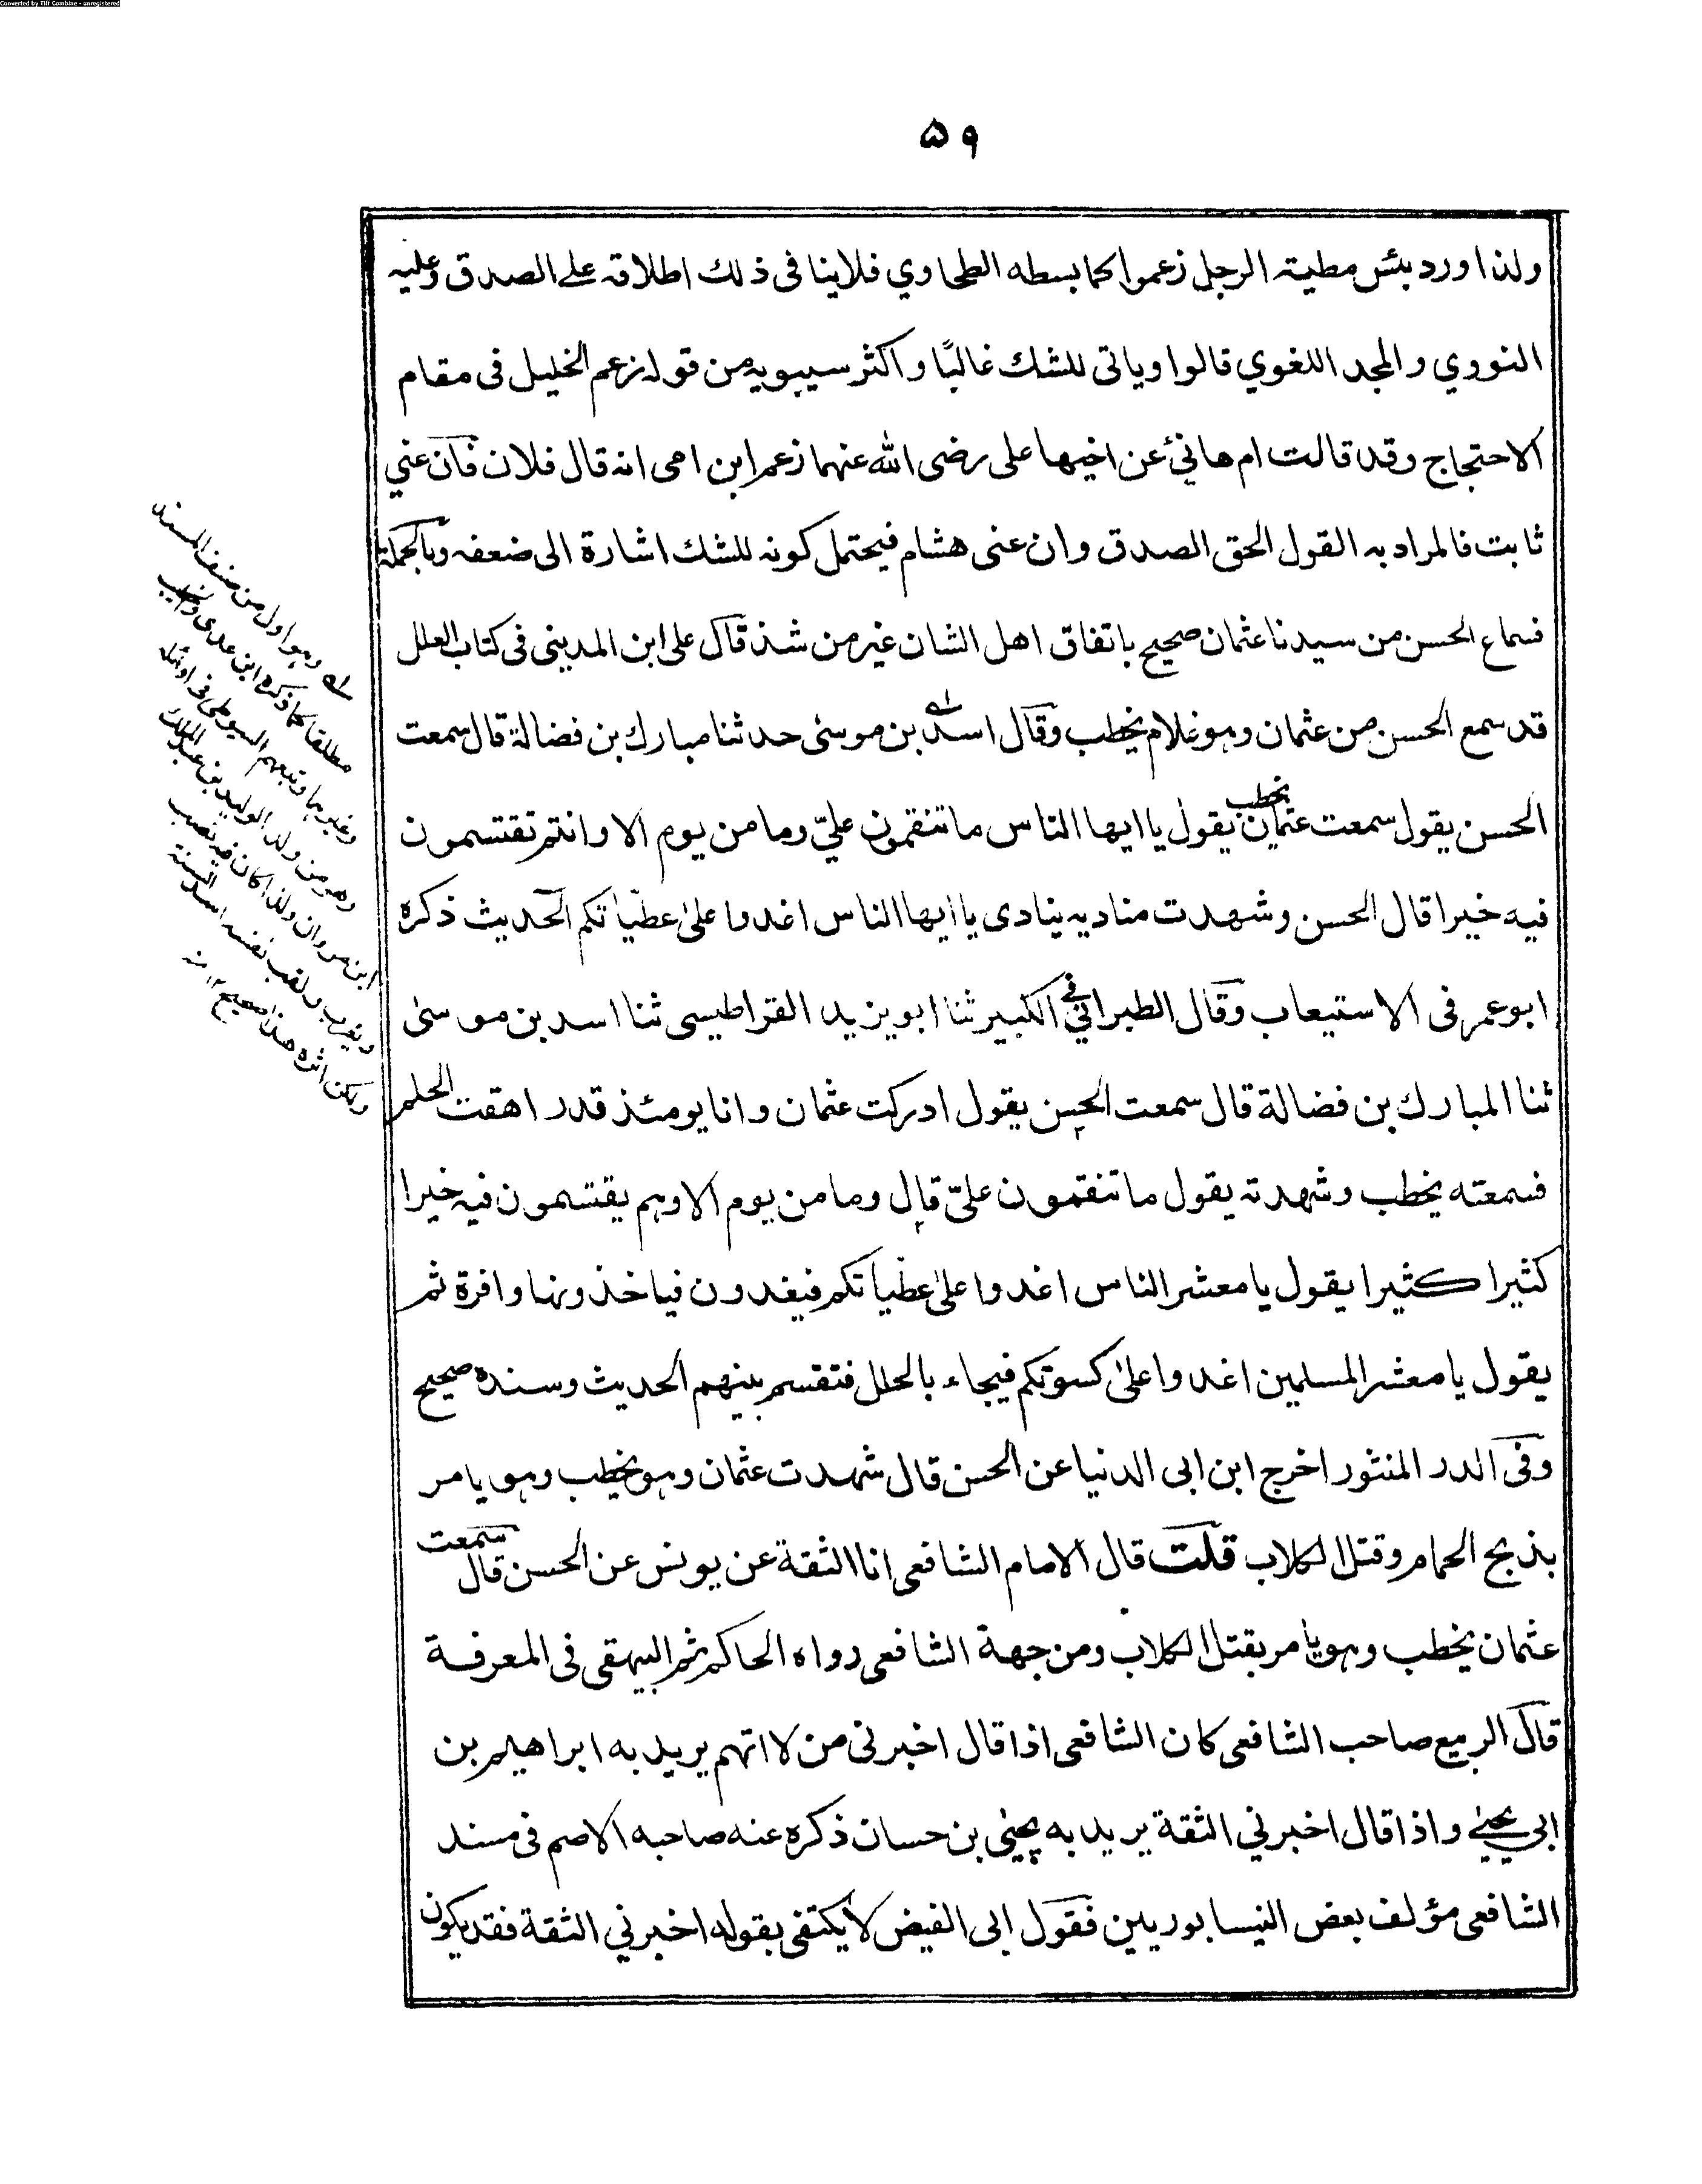 Converted by Tiff Combine - unregistered
۵۹
ولذا ورد بئس مطية الرجل زعموا كما بسطه الطحاوي فلا ينافى ذلك اطلاقه على الصدق وعليه
النووي والمجد اللغوي قالوا وياتى للشك غالبًا واكثر سيبويه من قوله زعم الخليل فى مقام
الاحتجاج وقد قالت ام هانئ عن اخيها على رضى الله عنهما زعم ابن امى انه قال فلان فان عني
ثابت فالمراد به القول الحق الصدق وان عنى هشام فيحتمل كونه للشك اشارة الى ضعفه وبالجملة
فسماع الحسن من سيدنا عثمان صحيح باتفاق اهل الشان غير من شذ قال على ابن المدينى فى كتاب العلل
قد سمع الحسن من عثمان وهو غلام يخطب وقال اسد بن موسىٰ حدثنا مبارك بن فضالة قال سمعت
الحسن يقول سمعت عثمان يخطب يقول يا ايها الناس ما تنقمون عليّ وما من يوم الا وانتم تقتسمون
فيه خيرا قال الحسن وشهدت مناديه ينادى يا ايها الناس اغدوا علىٰ عطياتكم الحديث ذكره
ابو عمر فى الاستيعاب وقال الطبرانى فى الكبير ثنا ابو يزيد القراطيسى ثنا اسد بن موسىٰ
ثنا المبارك بن فضالة قال سمعت الحسن يقول ادركت عثمان وانا يومئذ قد راهقت الحلم
فسمعته يخطب وشهدته يقول ما تنقمون عليّ قال وما من يوم الا وهم يقتسمون فيه خيرا
كثيرا كثيرا يقول يا معشر الناس اغدوا علىٰ عطياتكم فيغدون فياخذونها وافرة ثم
يقول يا معشر المسلمين اغدوا علىٰ كسوتكم فيجاء بالحلل فتقسم بينهم الحديث وسنده صحيح
وفى الدر المنثور اخرج ابن ابى الدنيا عن الحسن قال شهدت عثمان وهو يخطب وهو يامر
بذبح الحمام وقتل الكلاب قلت قال الامام الشافعى انا الثقة عن يونس عن الحسن قال سمعت
عثمان يخطب وهو يامر بقتل الكلاب ومن جهة الشافعى رواه الحاكم ثم البيهقى فى المعرفة
قال الربيع صاحب الشافعى كان الشافعى اذا قال اخبرنى من لا اتهم يريد به ابراهيم بن
ابي يحيىٰ واذا قال اخبرني الثقة يريد به يحيىٰ بن حسان ذكره عنه صاحبه الاصم فى مسند
الشافعى مؤلف بعض النيسابوريين فقول ابى الفيض لا يكتفى بقوله اخبرني الثقة فقد يكون
له وهو اول من صنف المسند
مطلقا كما ذكره ابن عدى
وغيرهما وتبعهم السيوطى فى اوئله
وهو من ولد الوليد بن عبد الملك
ابن مروان ولذا كان فيه نصب
ويغرب ولقب نفسه اسد السنة
ولكن اثره هذا صحيح ١٢ منه